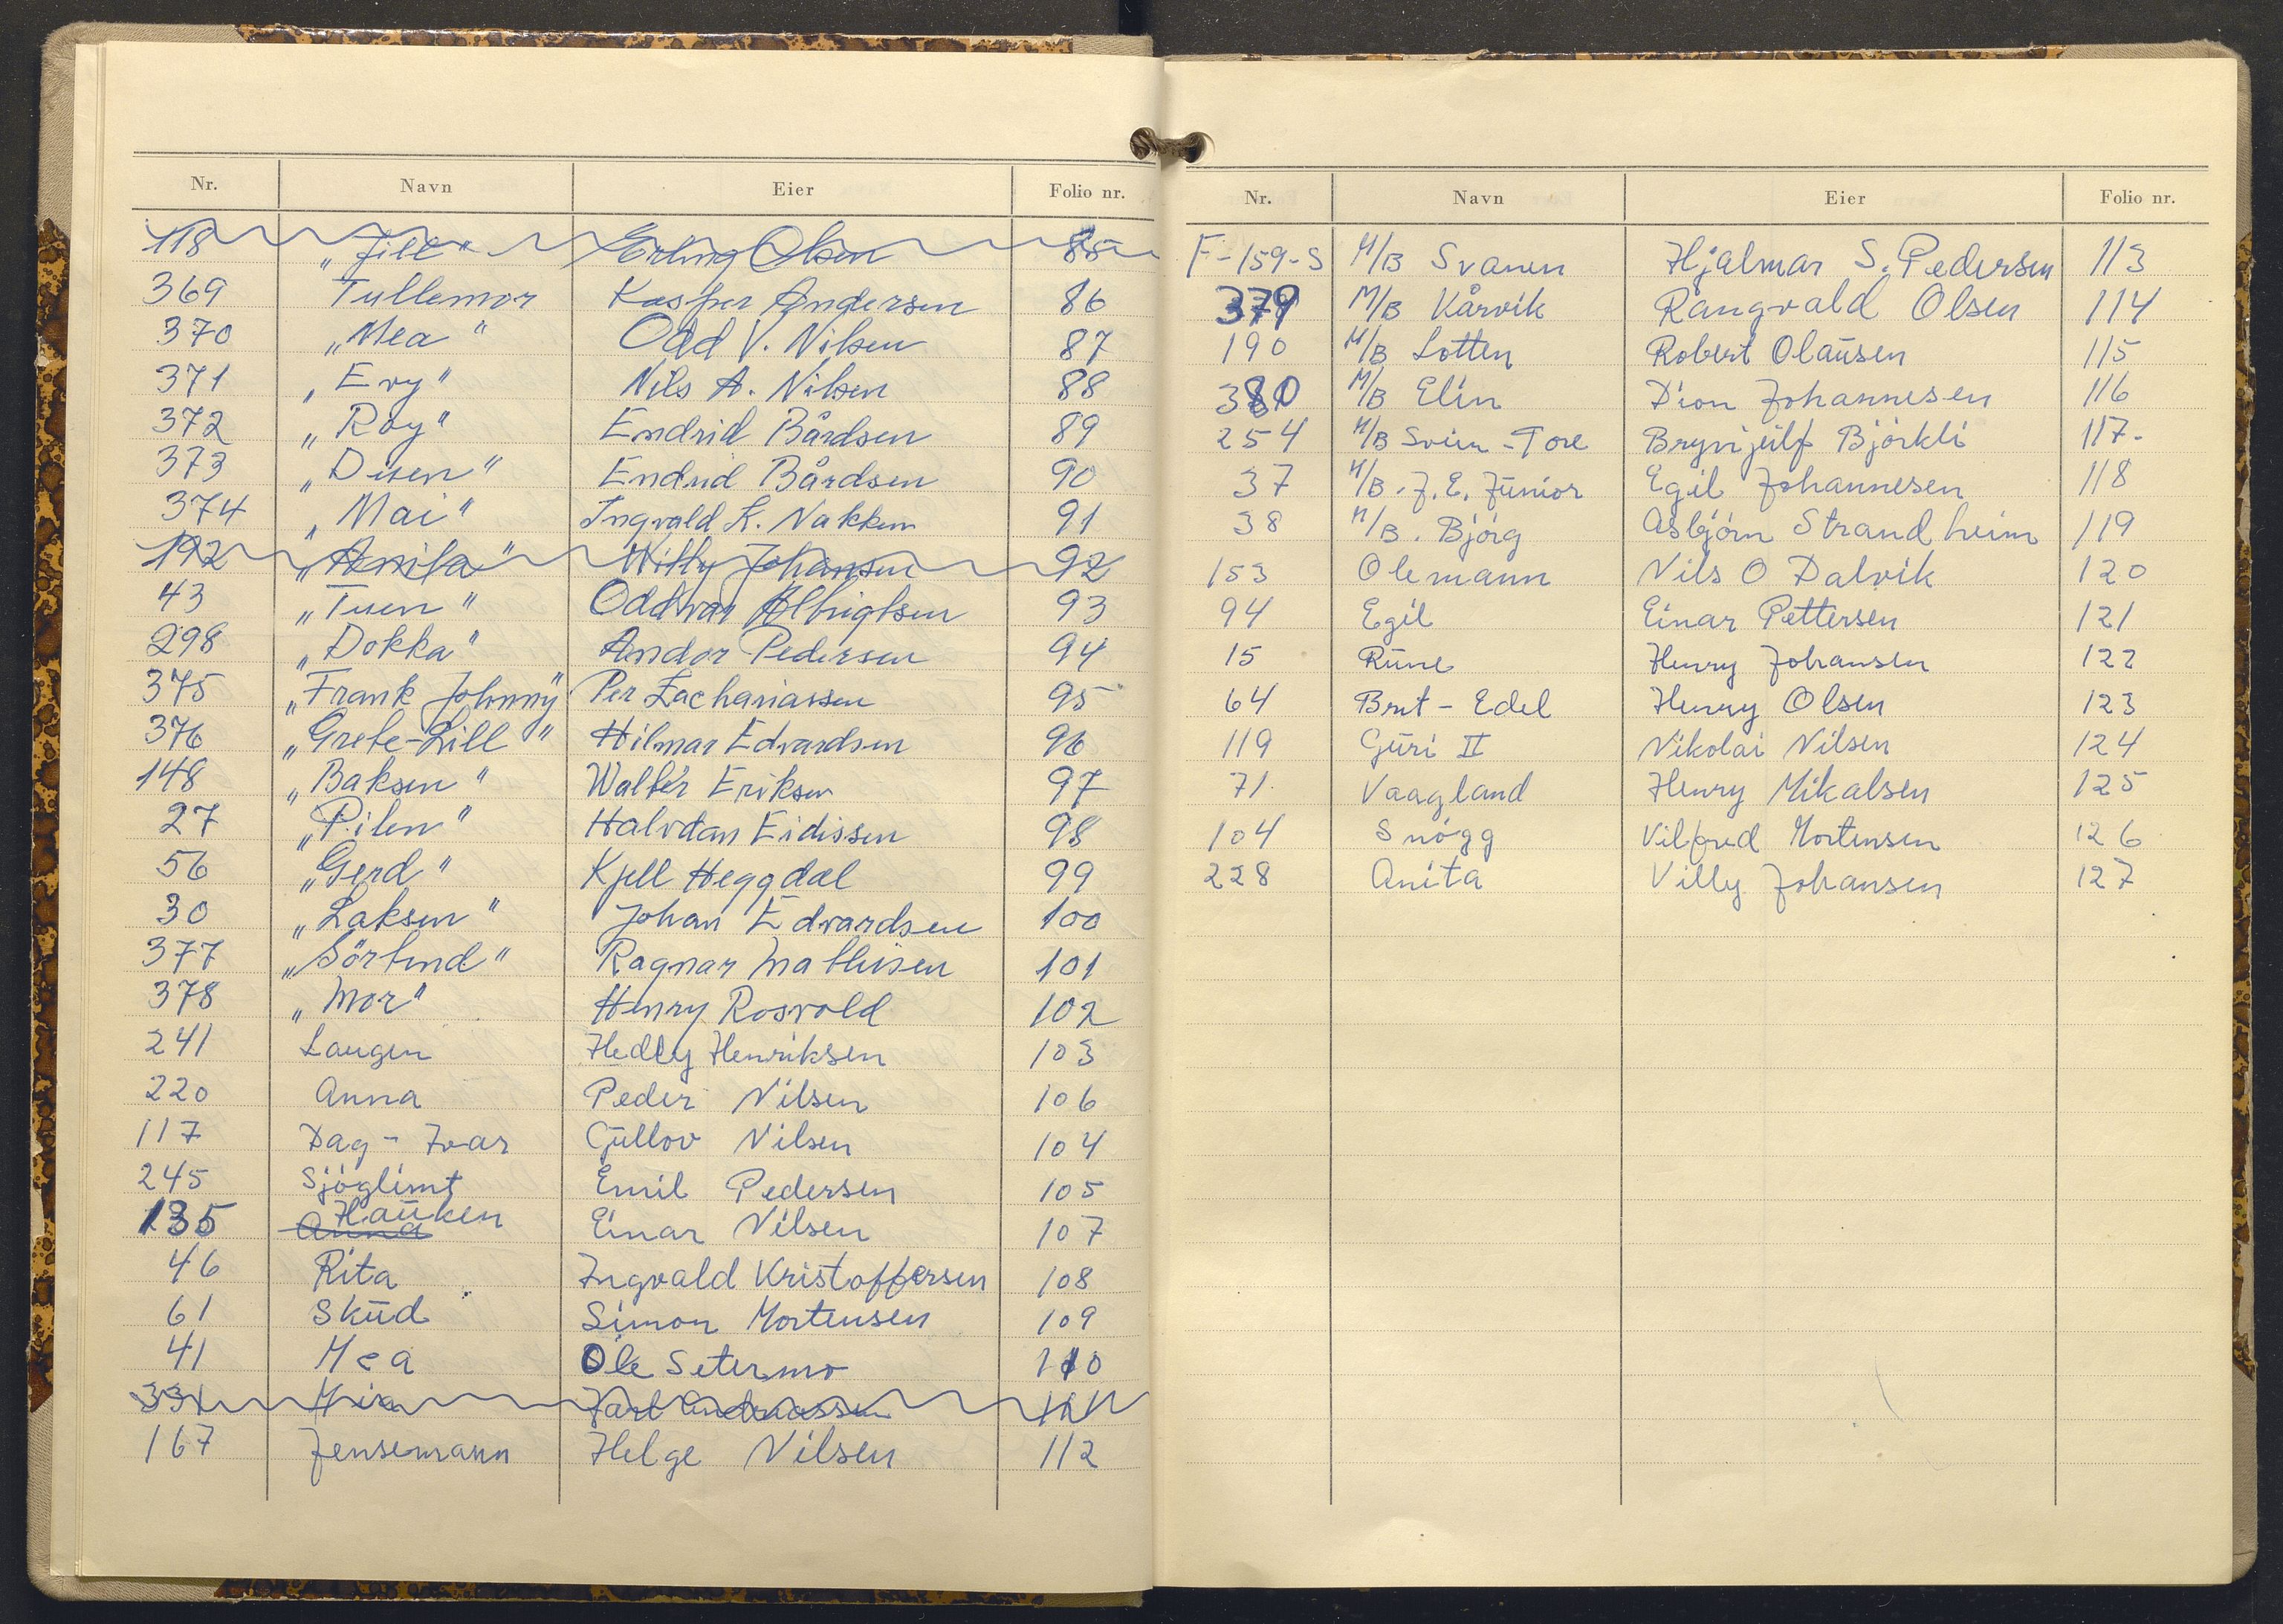 Nr. Navn Eier Folio nr.
118 „Jill“ Erling Olsen 85
369 Tullemor Kasper Andersen 86
370 „Mea“ Odd V. Nilsen 87
371 „Evy“ Nils A. Nilsen 88
372 „Roy“ Endrid Bårdsen 89
373 „Disen“ Endrid Bårdsen 90
374 „Mai“ Ingvald L. Nakken 91
192 „Anita“ Willy Johansen 92
43 „Tuen“ Oddvar Albrigtsen 93
298 „Dokka“ Andor Pedersen 94
375 „Frank Johnny“ Per Zachariassen 95
376 „Grete-Lill“ Hilmar Edvardsen 96
148 „Baksen“ Walter Eriksen 97
27 „Pilen“ Halvdan Eidissen 98
56 „Gerd“ Kjell Heggdal 99
30 „Laksen“ Johan Edvardsen 100
377 „Sörtind“ Ragnar Mathisen 101
378 „Mor“ Henry Rosvold 102
241 Laugen Hedly Henriksen 103
220 Anna Peder Nilsen 106
117 Dag-Ivar Gullov Nilsen 104
245 Sjöglimt Emil Pedersen 105
Hauken
135 Anna Einar Nilsen 107
46 Rita Ingvald Kristoffersen 108
61 Skud Simon Mortensen 109
41 Mea Ole Setermo 110
331 Mia Jarl Andreassen 111
167 Jensemann Helge Nilsen 112
Nr. Navn Eier Folio nr.
F-159-S M/B Svanen Hjalmar S. Pedersen 113
379 M/B Kårvik Rangvald Olsen 114
190 M/B Lotten Robert Olausen 115
380 M/B Elin Dion Johannesen 116
254 M/B Svein-Tore Brynjulf Björkli 117.
37 M/B. J.E. Junior Egil Johannesen 118
38 M/B. Björg Asbjörn Strandheim 119
153 Olemann Nils O Dalvik 120
94 Egil Einar Pettersen 121
15 Rune Henry Johansen 122
64 Brit-Edel Henry Olsen 123
119 Guri II Nikolai Nilsen 124
71. Vaagland Henry Mikalsen 125
104 Snögg Vilfred Mortensen 126
228 Anita Villy Johansen 127